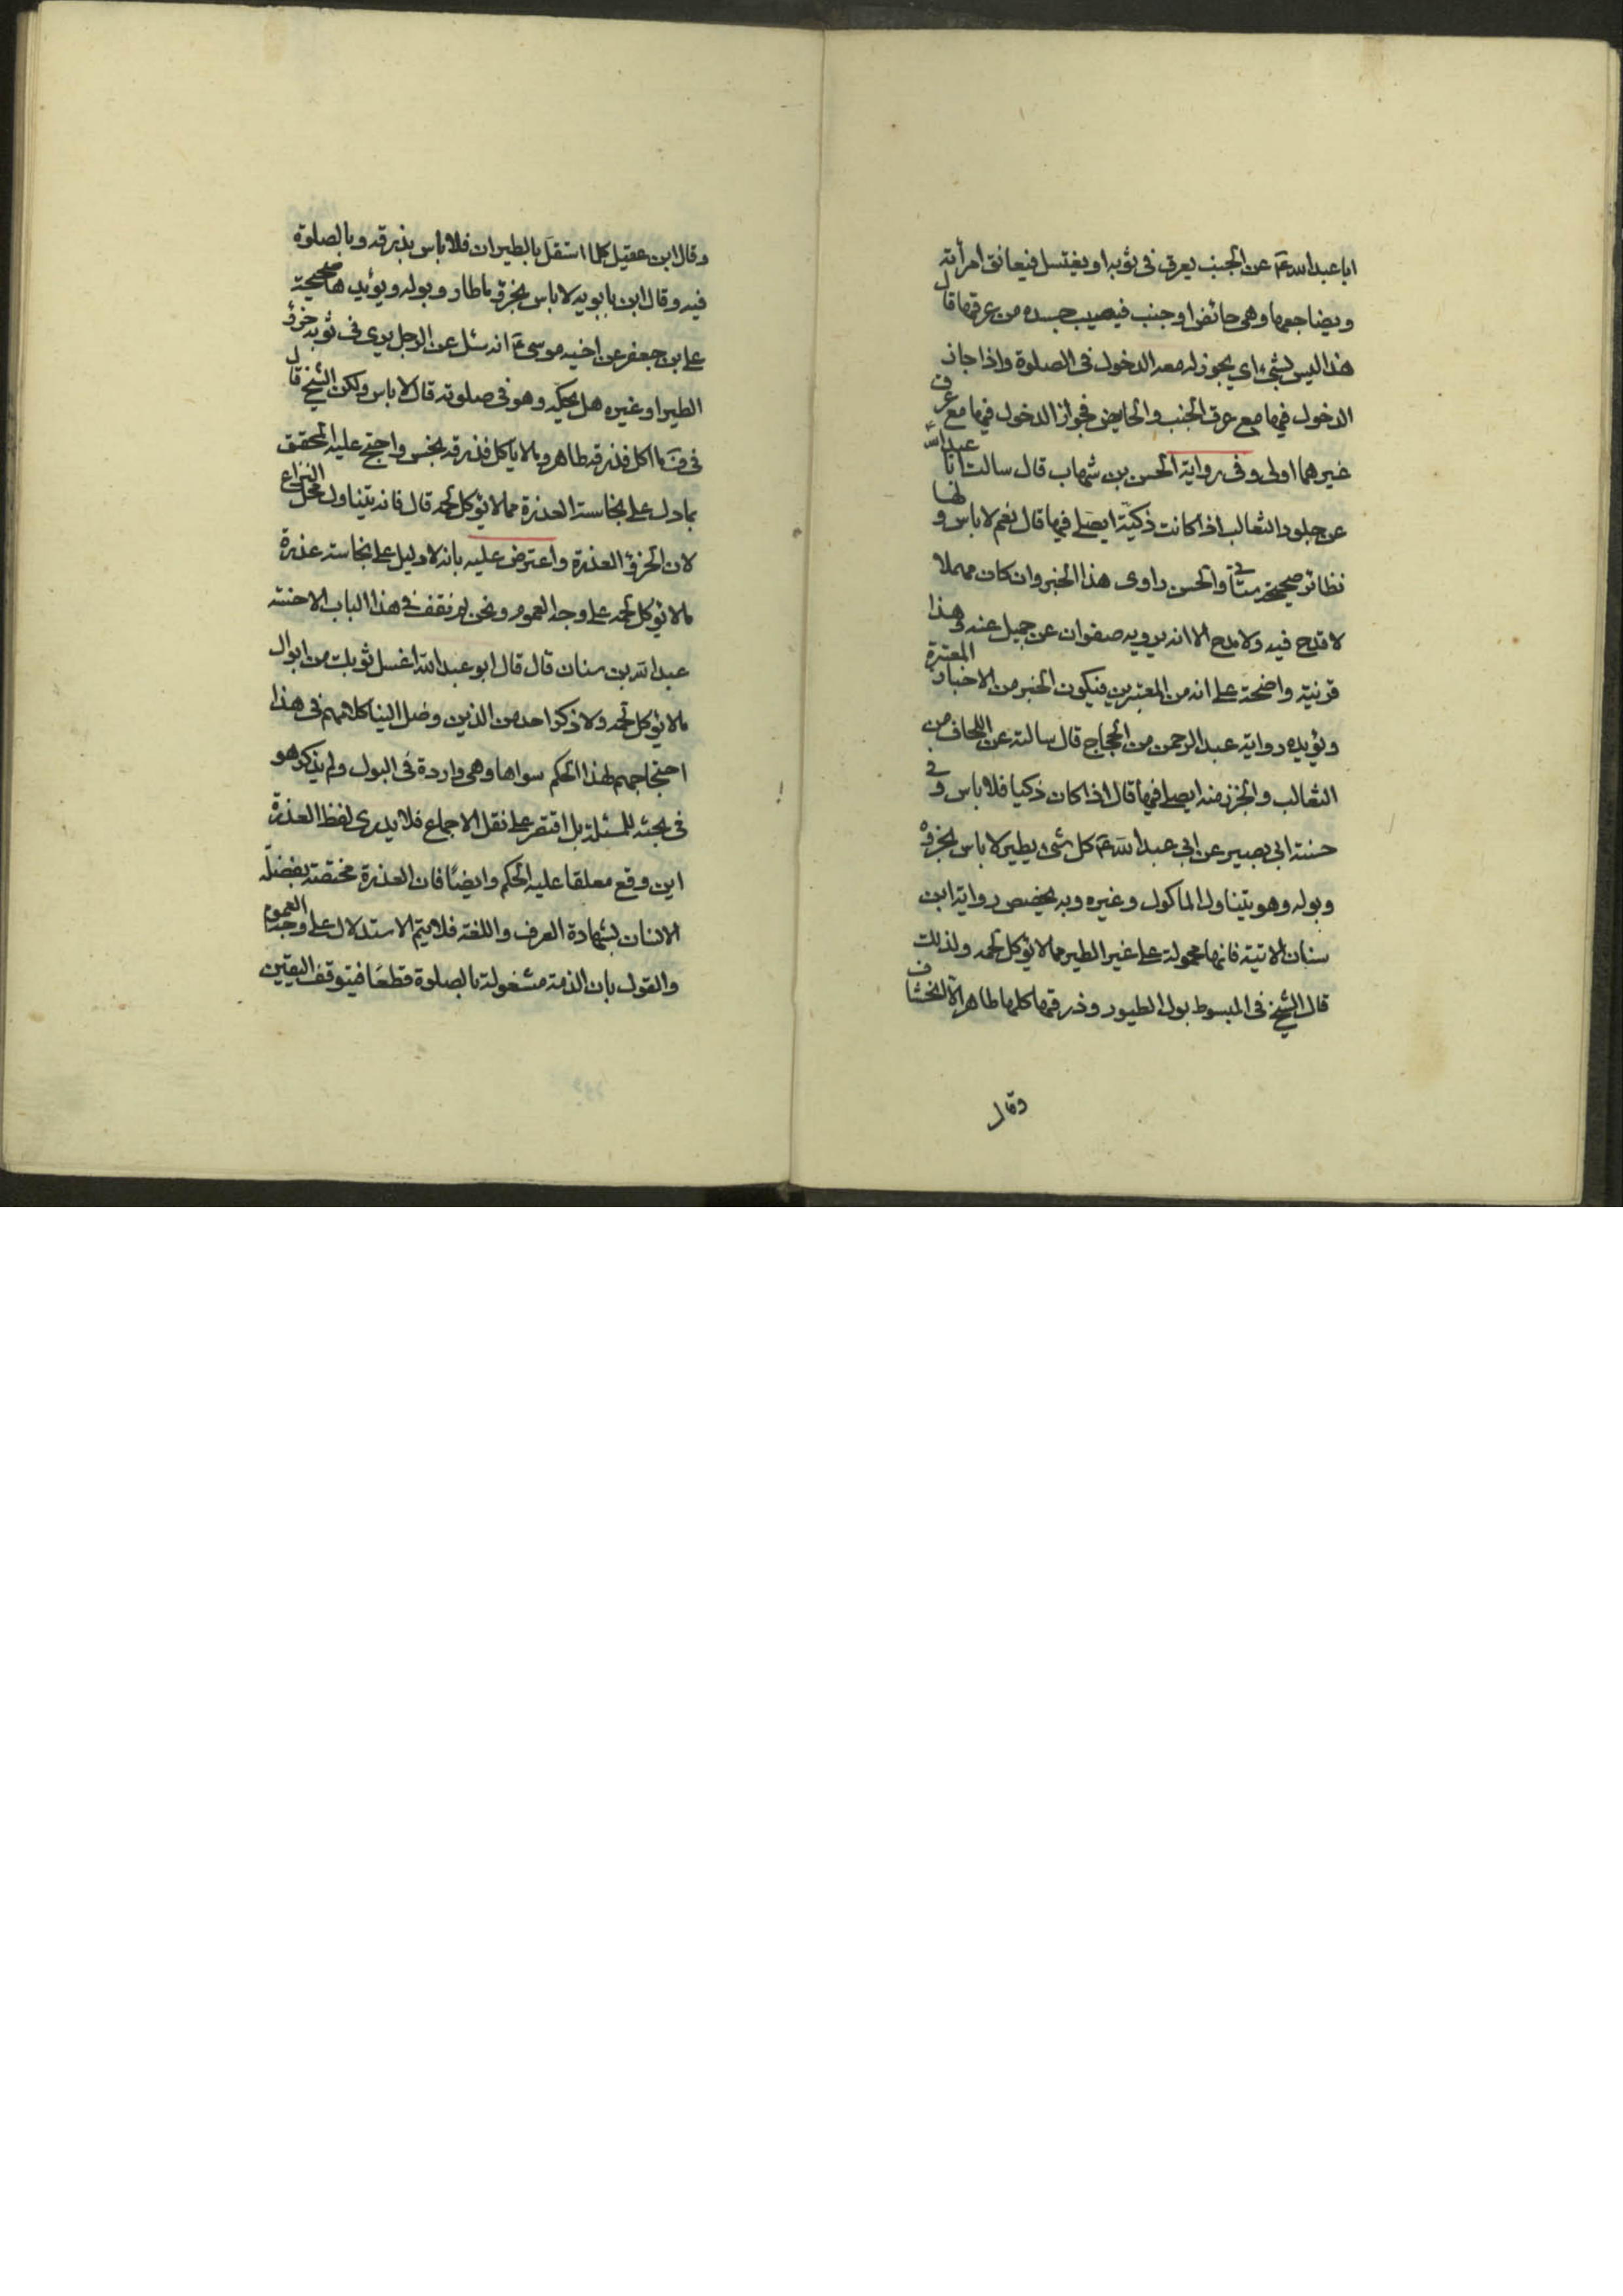 ابا عبد الله عن الجنب يعرق فى ثوبه او يغتسل فيعانق امرأته
ويضاجعها وهى حائض او جنب فيصيب جسده من عرقها قال
هذا ليس بشئ اى يجوز له معه الدخول فى الصلوة واذا جاز
الدخول فيها مع عرق الجنب والحايض فجواز الدخول فيها مع عرق
غيرهما اولى وفى رواية الحسن بن شهاب قال سالت ابا عبد الله
عن جلود الثعالب اذا كانت ذكية ايصلى فيها قال نعم لا باس و لها
نظائر صحيحة والحسن راوى هذا الخبر وان كان مهملا
لا قدح فيه ولا مدح الا انه يرويه صفوان عن جميل عنه وهذا
قرنية واضحة على انه من المعتبرين فيكون الخبر من الاخبار المعتبرة
ويؤيده رواية عبد الرحمن من الحجاج قال سالته عن اللحاف من
الثعالب والخز منه ايصلى فيها قال اذا كان ذكيا فلا باس و فى
حسنة ابى بصير عن ابى عبد الله كل شئ يطير لا باس بخرؤه
وبوله وهو يتناول الماكول وغيره وبه يخصص رواية ابن
سنان الاتية فانها محمولة على غير الطير مما لا يؤكل لحمه ولذلك
قال الشيخ فى المبسوط بول الطيور وذرقها كلها طاهر الا الخشاف
وقال
وقال ابن عقيل كلما استقل بالطيران فلا باس بذرقه وبالصلوة
فيه وقال ابن بابويه لا باس بخرؤ ما طار وبوله ويؤيدها صحيحة
على بن جعفر عن اخيه موسى انه سئل عن الرجل يرى فى ثوبه خرؤ
الطير او غيره هل يحكه وهو فى صلوته قال لا باس ولكن الشيخ قال
فى ف ما اكل فذرقه طاهر وما لا يؤكل فذرقه نجس واحتج عليه المحقق
بما دل على نجاسة العذرة مما لا يؤكل لحمه قال فانه يتناول محل النزاع
لان الخرؤ العذرة واعترض عليه بانه لا دليل على نجاسة عذرة
ما لا يؤكل لحمه على وجه العموم ونحن لم نقف فى هذا الباب الا حسنة
عبد الله بن سنان قال قال ابو عبد الله اغسل ثوبك من ابوال
ما لا يؤكل لحمه ولا ذكر احد من الذين وصل الينا كلامهم فى هذا
احتجاجهم لهذا الحكم سواها وهى واردة فى البول ولم يذكر هو
فى بحثه للمسئلة بل اقتصر على نقل الاجماع فلا يدرى لفظ العذرة
اين وقع معلقا عليه الحكم وايضا فان العذرة مختصة بفضلة
الانسان بشهادة العرف واللغة فلا يتم الاستدلال على وجه العموم
والقول بان الذمة مشغولة بالصلوة قطعا فيتوقف اليقين